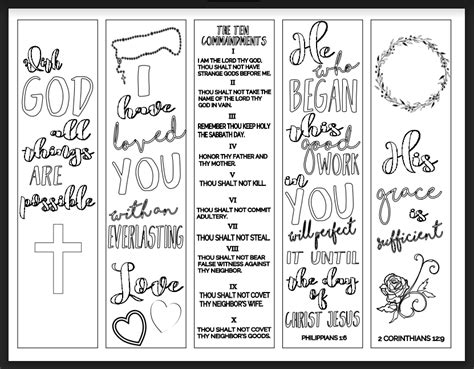 With
GOD
all
things
ARE
possible
I
have
loved
YOU
with an
EVERLASTING
Love
THE TEN
COMMANDMENTS
I
I AM THE LORD THY GOD.
THOU SHALT NOT HAVE
STRANGE GODS BEFORE ME.
II
THOU SHALT NOT TAKE
THE NAME OF THE LORD THY
GOD IN VAIN.
III
REMEMBER THOU KEEP HOLY
THE SABBATH DAY.
IV
HONOR THY FATHER AND
THY MOTHER.
V
THOU SHALT NOT KILL.
VI
THOU SHALT NOT COMMIT
ADULTERY.
VII
THOU SHALT NOT STEAL.
VIII
THOU SHALT NOT BEAR
FALSE WITNESS AGAINST
THY NEIGHBOR.
IX
THOU SHALT NOT COVET
THY NEIGHBOR'S WIFE.
X
THOU SHALT NOT COVET
THY NEIGHBOR'S GOODS.
He
who
BEGAN
this
good
WORK
in
YOU
will perfect
IT UNTIL
the day
of
CHRIST JESUS
PHILIPPIANS 1:6
His
grace
is
sufficient
2 CORINTHIANS 12:9